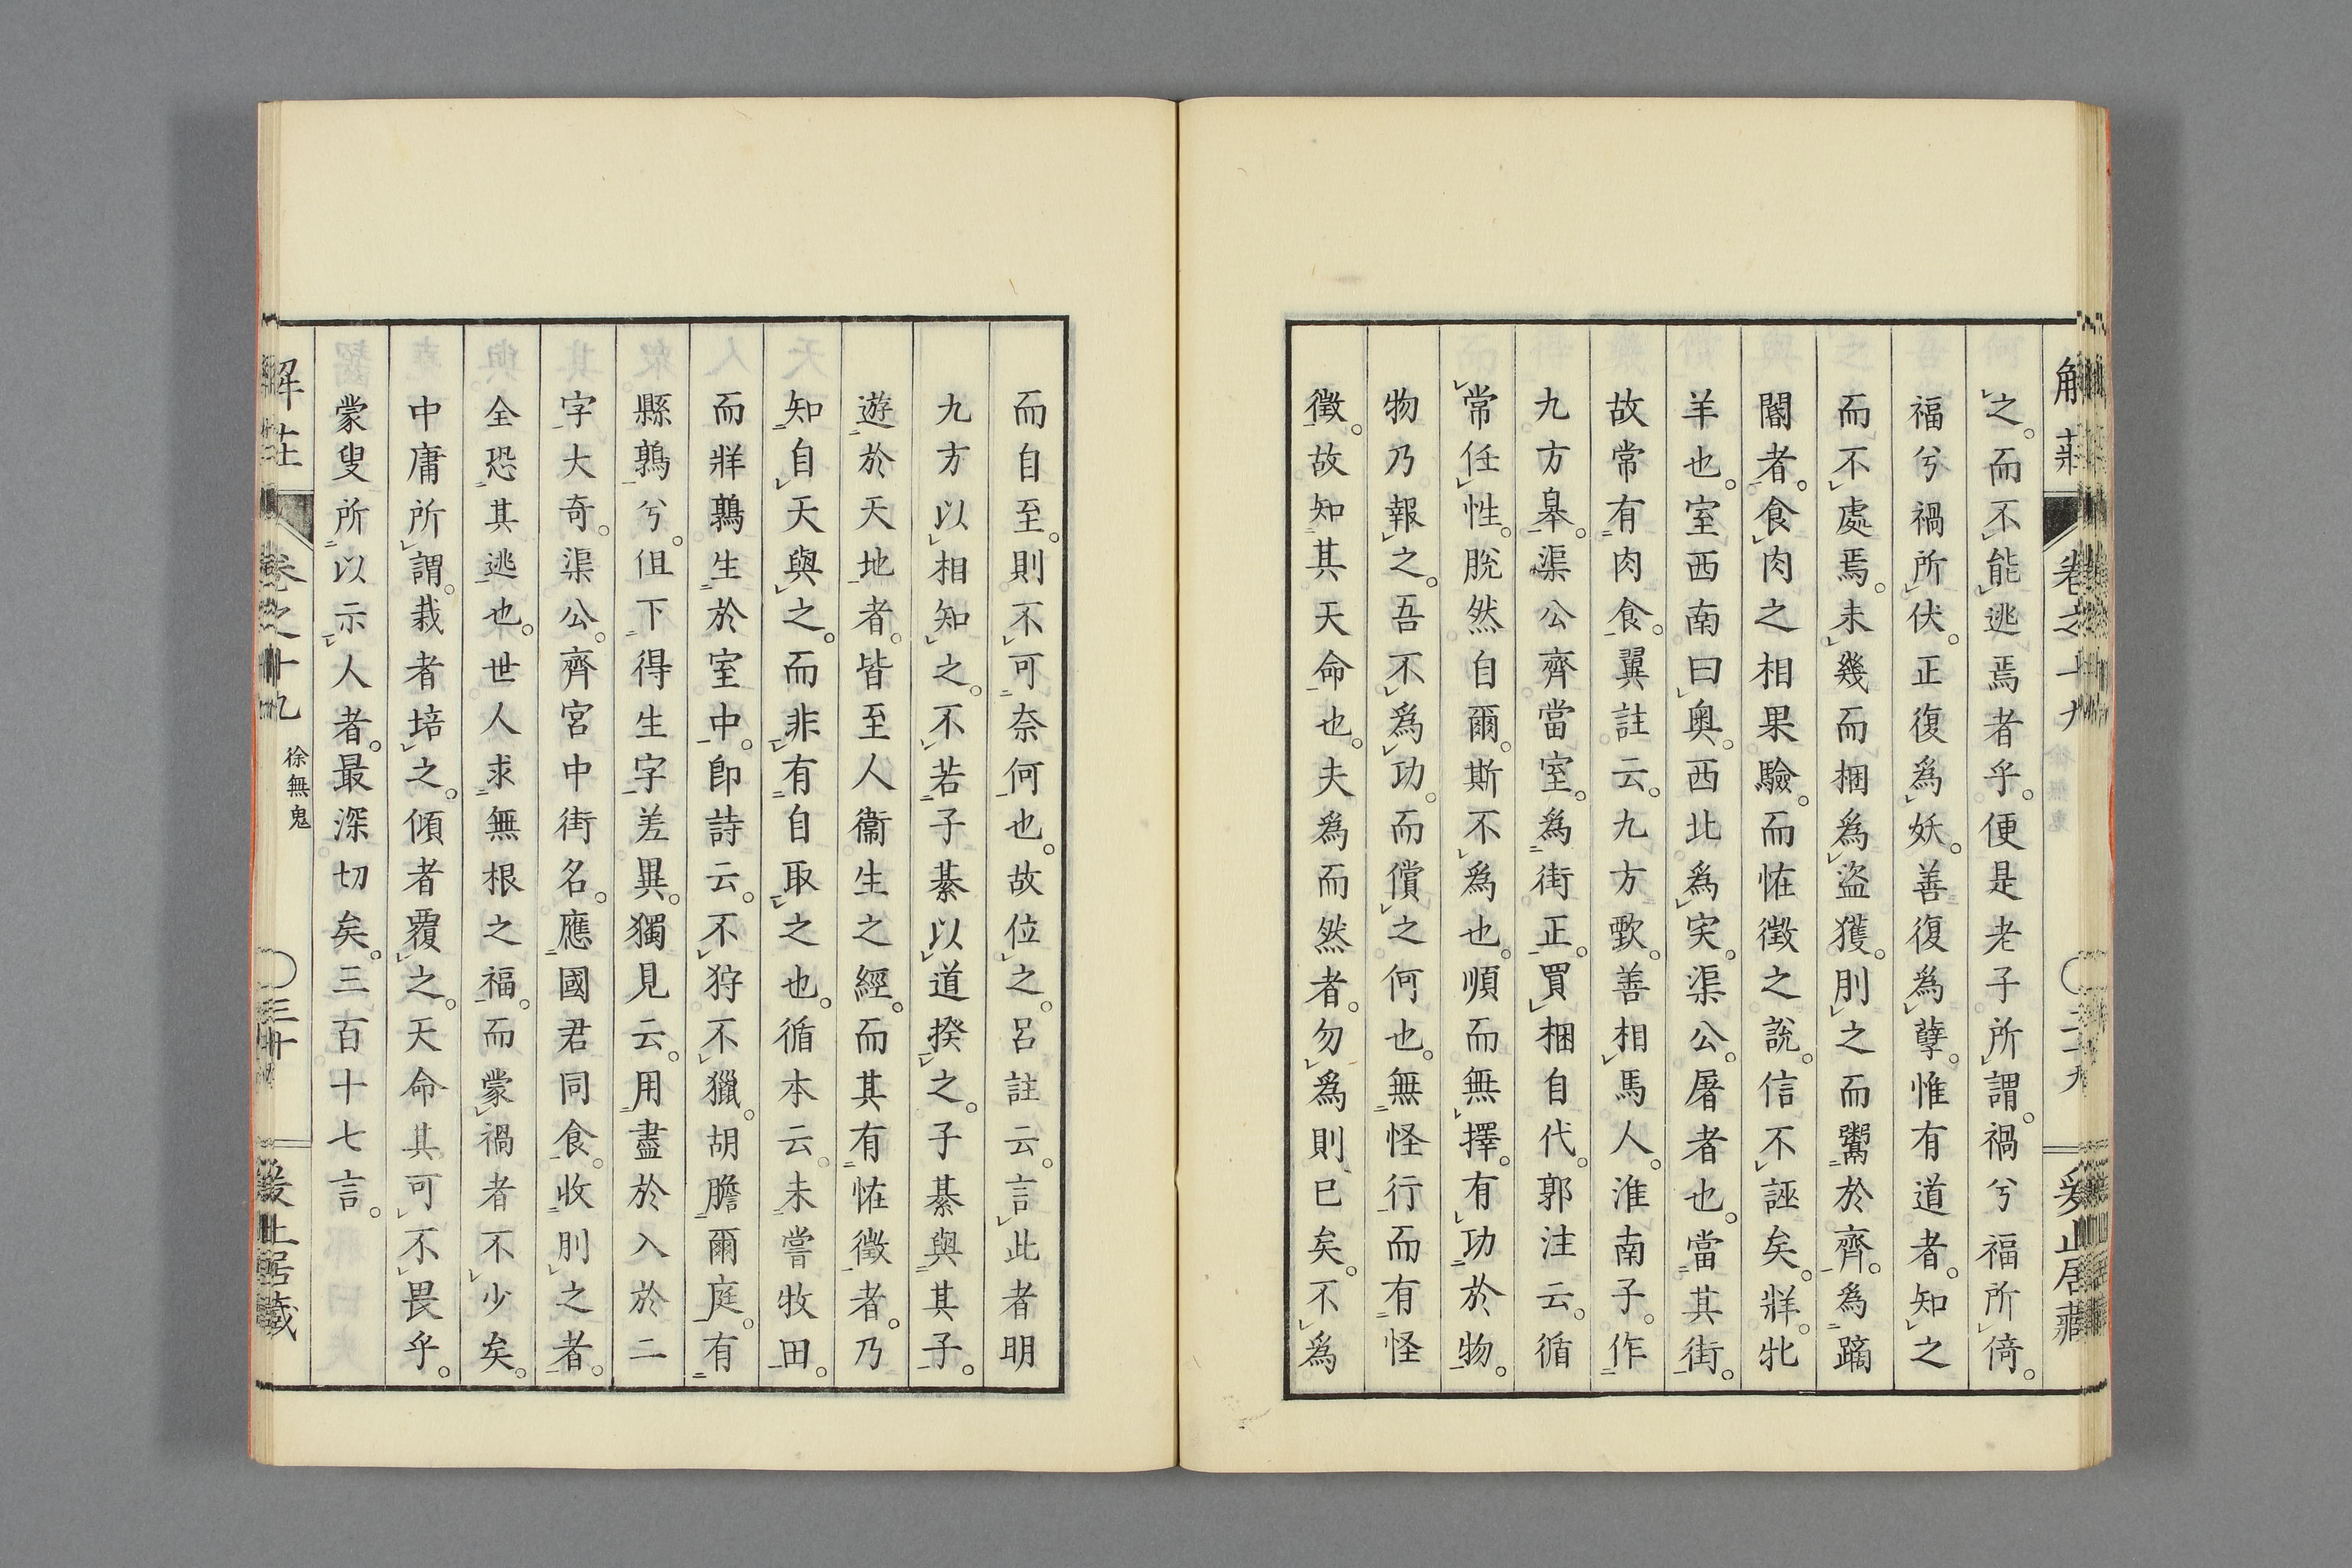 之。而不能逃焉者乎。便是老子所謂。禍兮福所倚。
福兮禍所伏。正復爲妖。善復爲孽。惟有道者。知之
而不處焉。未幾而梱爲盜獲。刖之而鬻於齊。爲蹢
閽者。食肉之相果驗。而恠徴之說。信不誣矣。牂。牝
羊也。室西南曰奧。西北爲宎。渠公。屠者也。當其街。
故常有肉食。翼註云。九方歅。善相馬人。淮南子。作
九方皋。渠公齊當室。爲街正。買梱自代。郭注云。循
常任性。脫然自爾。斯不爲也。順而無擇。有功於物。
物乃報之。吾不爲功。而償之何也。無怪行而有怪
徵。故知其天命也。夫爲而然者。勿爲則已矣。不爲
而自至。則不可奈何也。故位之。呂註云。言此者明
九方以相知之。不若子綦以道揆之。子綦與其子。
遊於天地者。皆至人衞生之經。而其有恠徵者。乃
知自天與之。而非有自取之也。循本云。未嘗牧田。
而牂鶉生於室中。卽詩云。不狩不獵。胡瞻爾庭。有
縣鶉兮。但下得生字差異。獨見云。用盡於入於二
字大奇。渠公。齊宮中街名。應國君同食。收刖之者。
全恐其逃也。世人求無根之福。而蒙禍者不少矣。
中庸所謂。栽者培之。傾者覆之。天命其可不畏乎。
蒙叟所以示人者。最深切矣。三百十七言。
徐無鬼